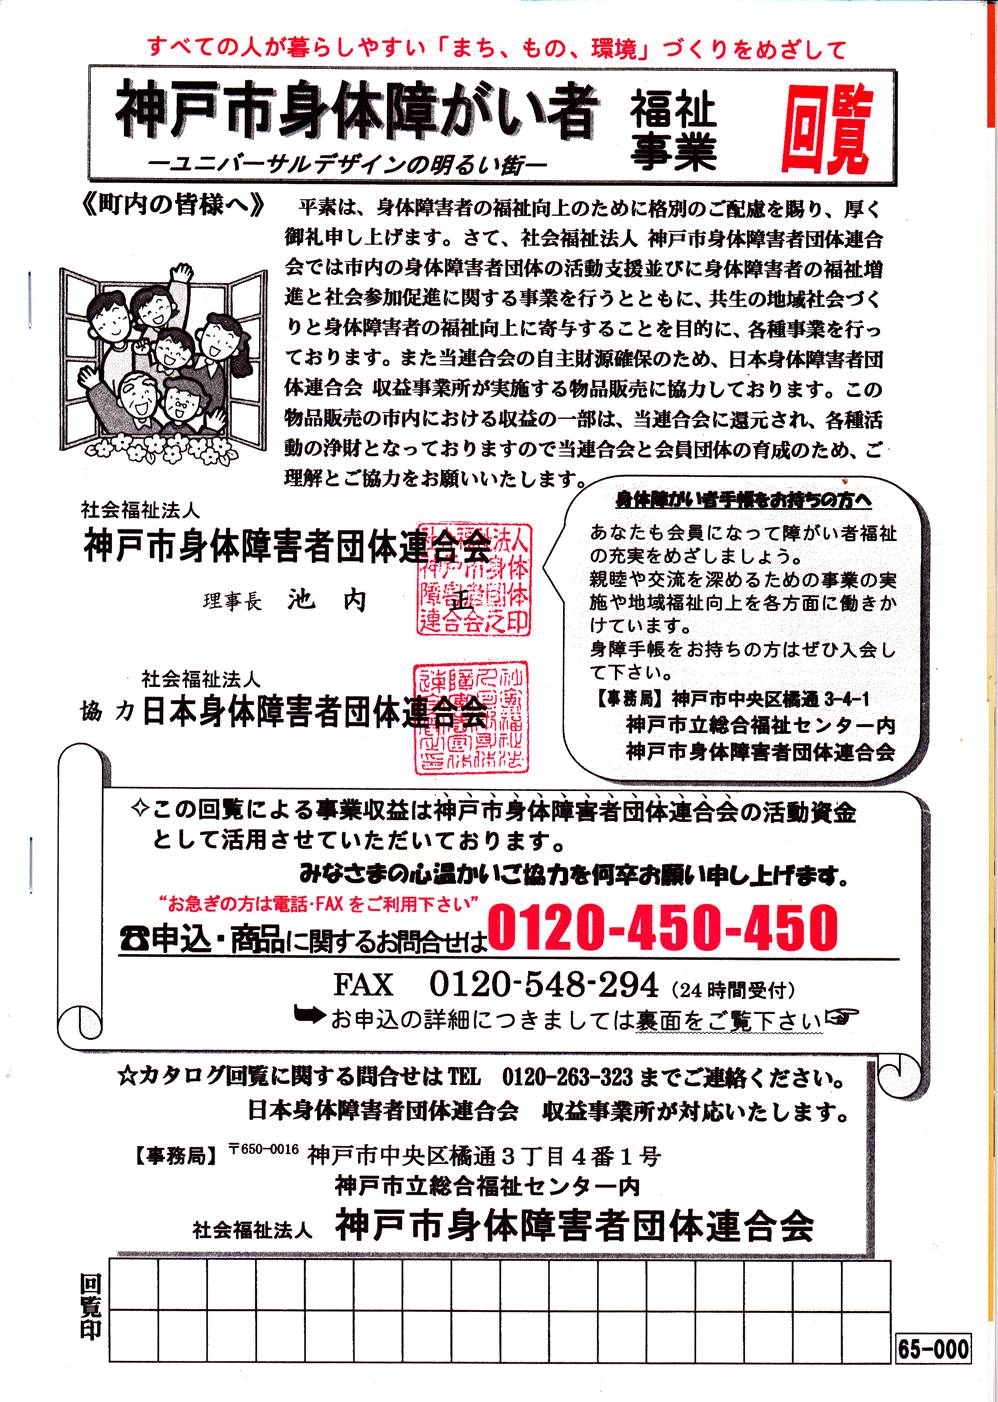 すべての人が暮らしやすい「まち、もの、環境」づくりをめざして
神戸市身体障がい者 福祉事業 回覧
―ユニバーサルデザインの明るい街―
《町内の皆様へ》
平素は、身体障害者の福祉向上のために格別のご配慮を賜り、厚く
御礼申し上げます。さて、社会福祉法人 神戸市身体障害者団体連合
会では市内の身体障害者団体の活動支援並びに身体障害者の福祉増
進と社会参加促進に関する事業を行うとともに、共生の地域社会づく
りと身体障害者の福祉向上に寄与することを目的に、各種事業を行っ
ております。また当連合会の自主財源確保のため、日本身体障害者団
体連合会 収益事業所が実施する物品販売に協力しております。この
物品販売の市内における収益の一部は、当連合会に還元され、各種活
動の浄財となっておりますので当連合会と会員団体の育成のため、ご
理解とご協力をお願いいたします。
社会福祉法人
神戸市身体障害者団体連合会
理事長 池内 正
社会福祉法人
協力 日本身体障害者団体連合会
身体障がい者手帳をお持ちの方へ
あなたも会員になって障がい者福祉
の充実をめざしましょう。
親睦や交流を深めるための事業の実
施や地域福祉向上を各方面に働きか
けています。
身障手帳をお持ちの方はぜひ入会し
て下さい。
【事務局】神戸市中央区橘通3-4-1
神戸市立総合福祉センター内
神戸市身体障害者団体連合会
✧この回覧による事業収益は神戸市身体障害者団体連合会の活動資金
として活用させていただいております。
みなさまの心温かいご協力を何卒お願い申し上げます。
“お急ぎの方は電話・FAXをご利用下さい”
☎申込・商品に関するお問合せは0120-450-450
FAX 0120-548-294（24時間受付）
➥お申込の詳細につきましては裏面をご覧下さい☞
☆カタログ回覧に関する問合せはTEL 0120-263-323までご連絡ください。
日本身体障害者団体連合会 収益事業所が対応いたします。
【事務局】〒650-0016 神戸市中央区橘通３丁目４番１号
神戸市立総合福祉センター内
社会福祉法人 神戸市身体障害者団体連合会
回覧印
65-000